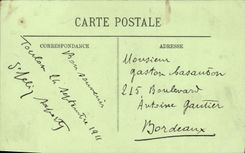 CARTE POSTALE
CORRESPONDANCE
ADRESSE
Bon souvenir
Toulon 24 septembre 1911
Monsieur
Gaston Casaubon
215 Boulevard
Antoine Gautier
Bordeaux